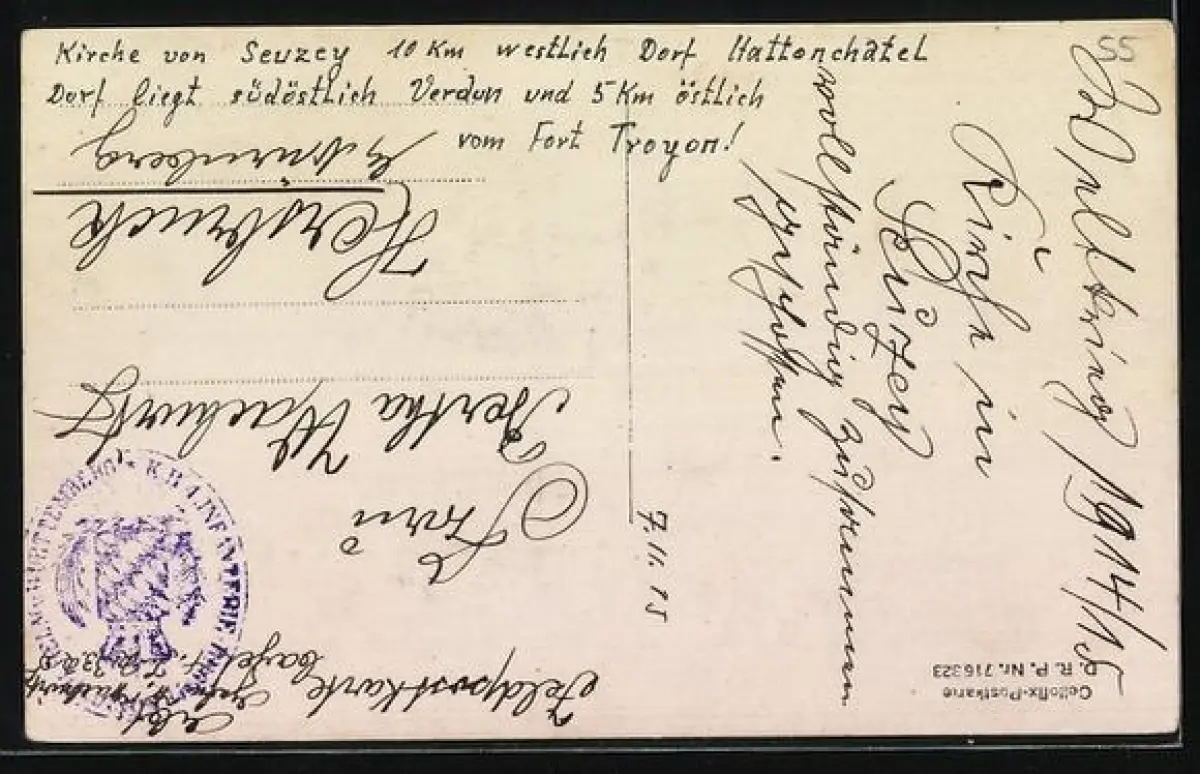 Kirche von Seuzey 10 Km westlich Dorf Hattonchâtel
Dorf liegt südöstlich Verdun und 5 Km östlich
vom Fort Troyon!
55
Weltkrieg 1914/15
Kirche in
Seuzey
vollständig zusammen
geschossen.
7.11.15
Feldpostkarte
Frau
Bertha
Hersbruck
b/Nürnberg
K.B. 4. INFANTERIE
WÜRTTEMBERG
Cellofix-Postkarte
D. R. P. Nr. 716323